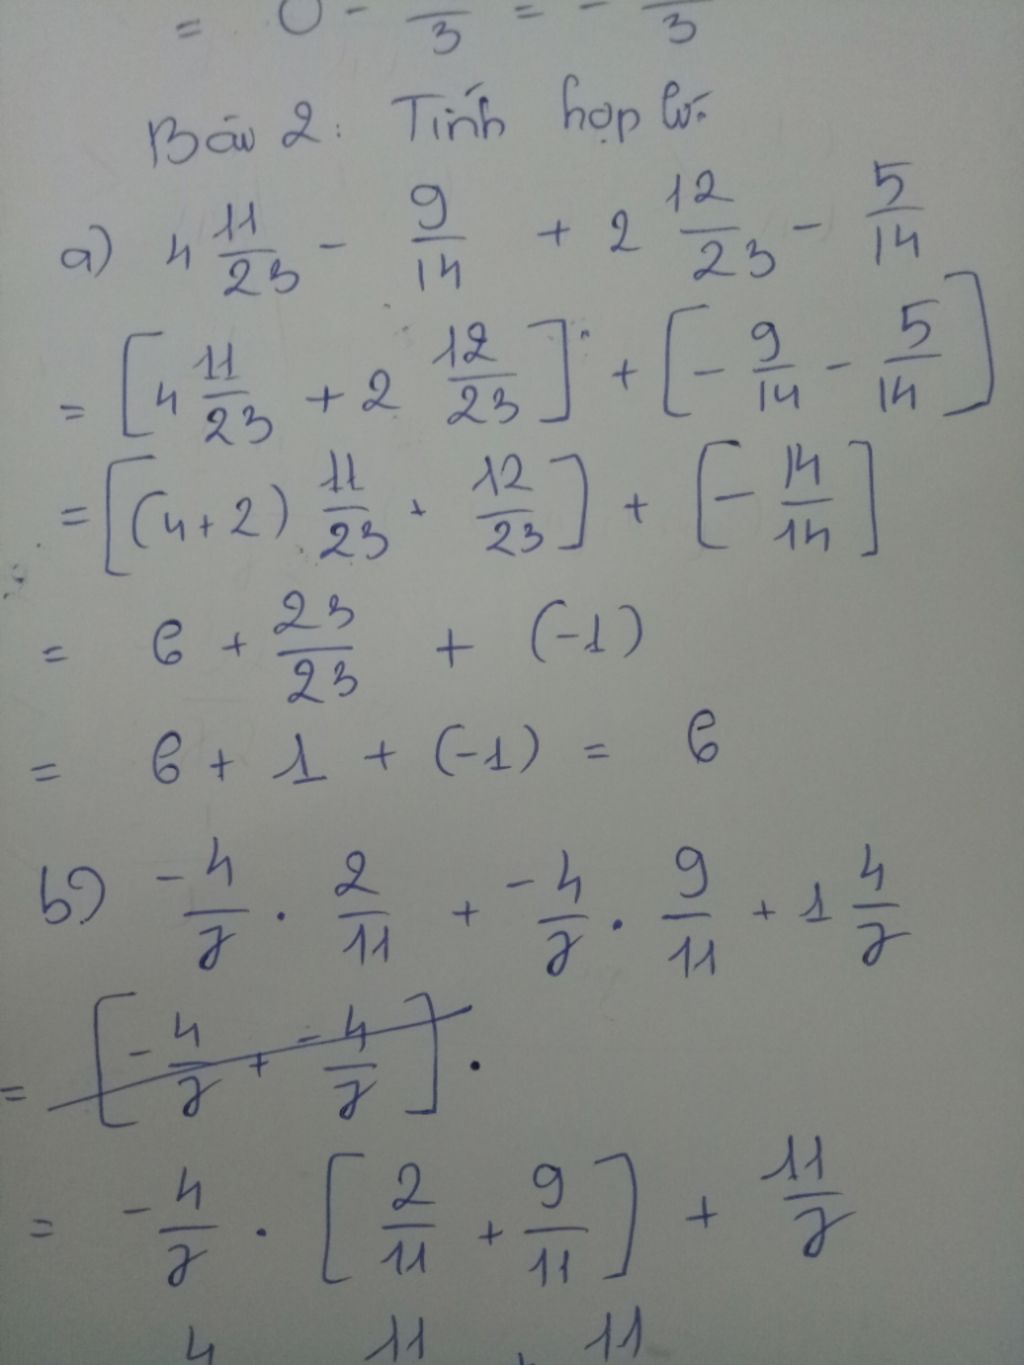 = 0 - /3 = - /3
Bài 2: Tính hợp lí.
a) 4 11/23 - 9/14 + 2 12/23 - 5/14
= [4 11/23 + 2 12/23] + [- 9/14 - 5/14]
= [(4+2) 11/23 + 12/23] + [- 14/14]
= 6 + 23/23 + (-1)
= 6 + 1 + (-1) = 6
b) -4/7 . 2/11 + -4/7 . 9/11 + 1 4/7
= [-4/7 + -4/7] .
= -4/7 . [2/11 + 9/11] + 11/7
4 11 + 11